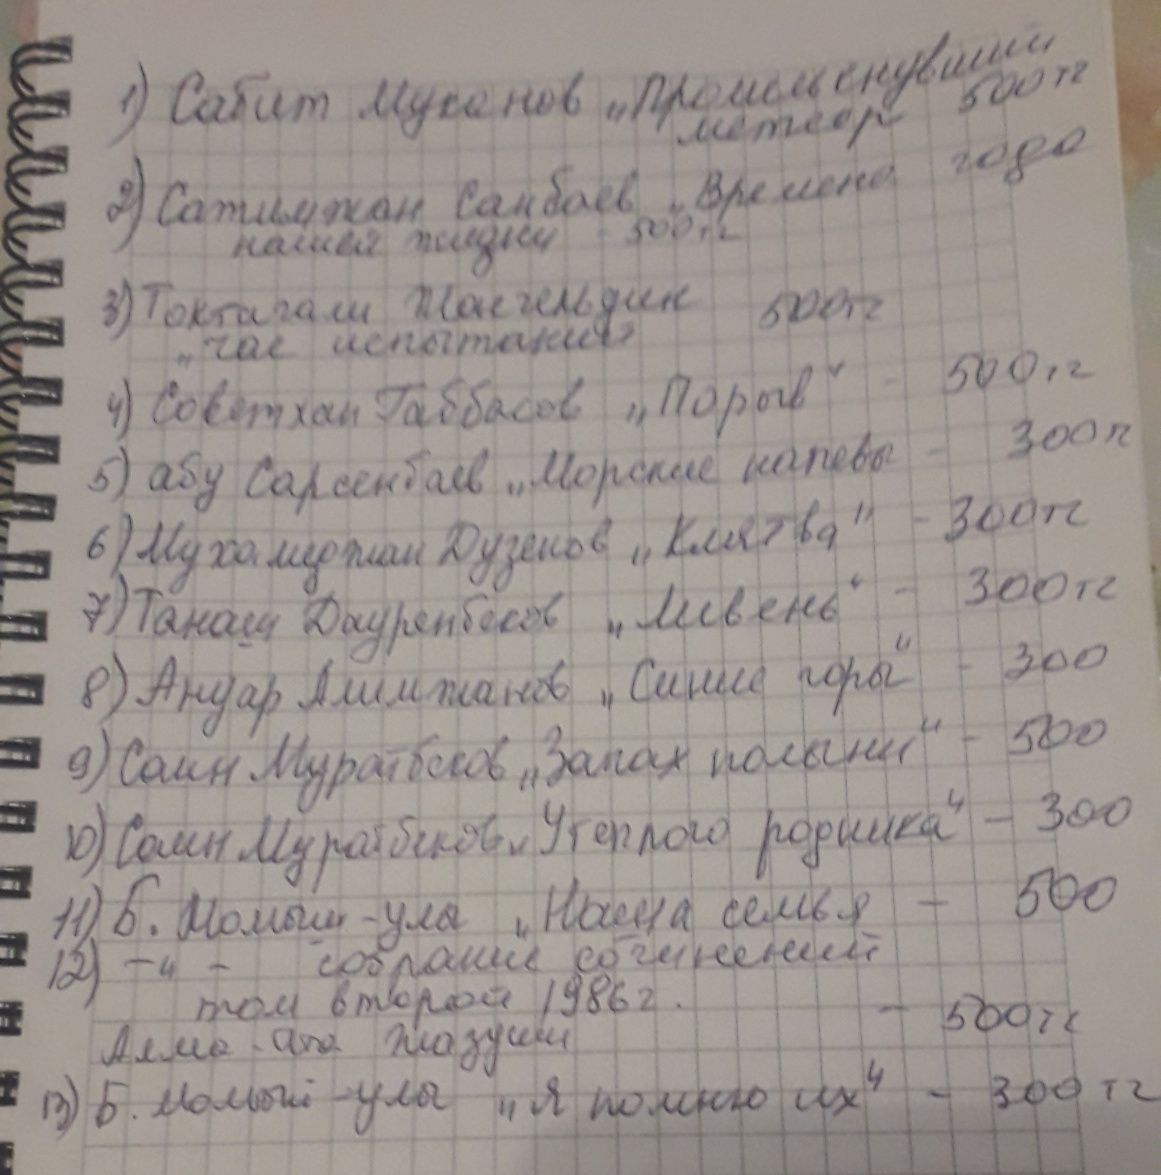 1) Сабит Муканов „Промелькнувший
метеор 500 тг
2) Сатимжан Санбаев „Времена года
нашей жизни - 500 тг
3) Токтагали Жангельдин 500 тг
„час испытания"
4) Советхан Габбасов „Порыв" - 500 тг
5) абу Сарсенбаев „Морские напевы - 300 т
6) Мухамеджан Дузенов „Клятва" - 300 тг
7) Танаш Дауренбеков „Ливень" - 300 тг
8) Ануар Алимжанов „Синие горы" - 300
9) Саин Муратбеков „Запах полыни" - 500
10) Саин Муратбеков „У теплого родника" - 300
11) Б. Момыш-улы „Наша семья - 500
12) —"— собрание сочинений
том второй 1986 г. - 500 тг
Алма-Ата Жазушы
13) Б. Момыш-улы „Я помню их" - 300 тг